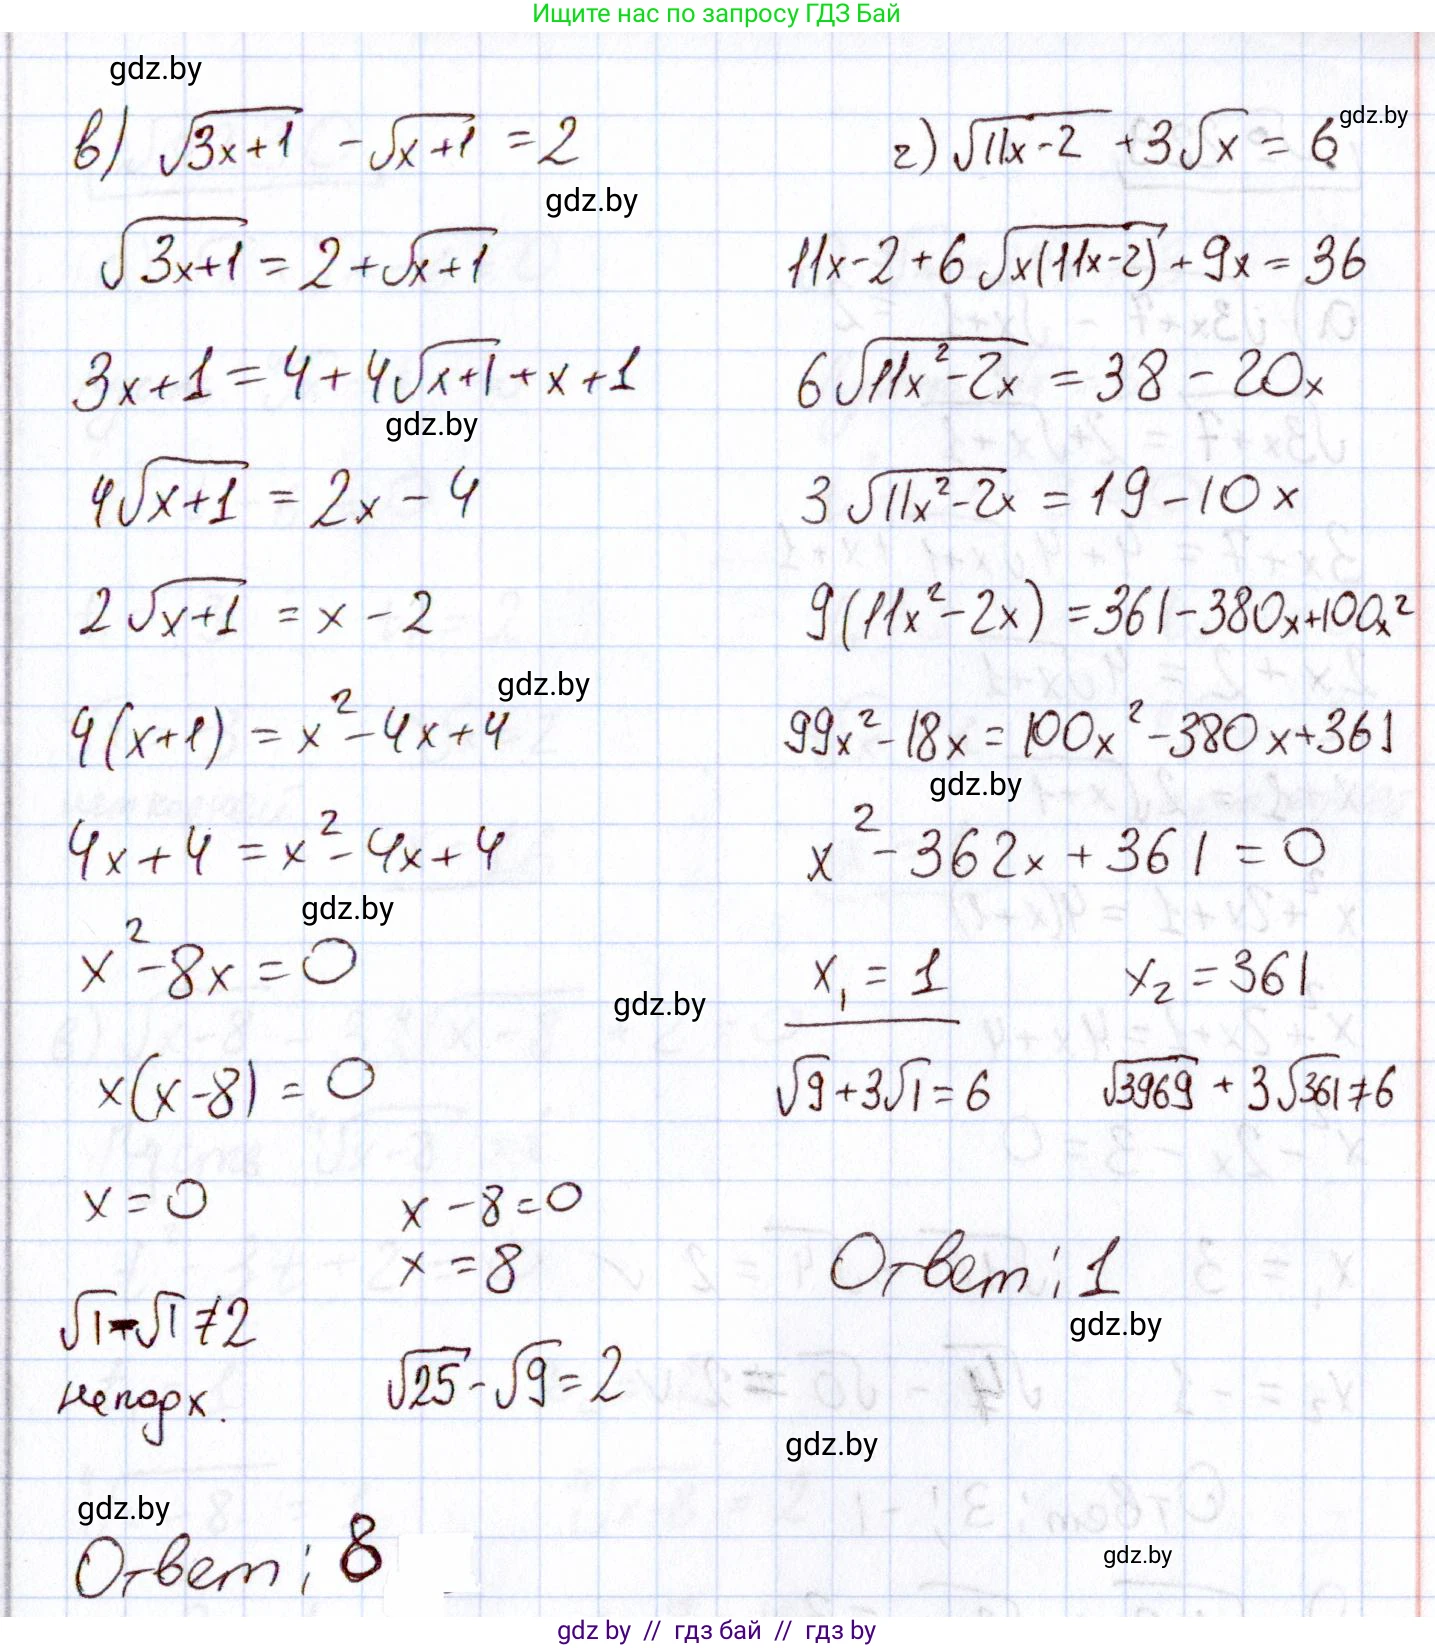 Ищите нас по запросу ГДЗ Бай
gdz.by
в) √(3x+1) - √(x+1) = 2
gdz.by
√(3x+1) = 2+√(x+1)
3x+1 = 4+4√(x+1)+x+1
gdz.by
4√(x+1) = 2x-4
2√(x+1) = x-2
gdz.by
4(x+1) = x²-4x+4
4x+4 = x²-4x+4
gdz.by
x²-8x=0
gdz.by
x(x-8) = 0
x=0
x-8=0
x=8
√1-√1≠2
неподх.
√25-√9=2
gdz.by
Ответ: 8
gdz.by
г) √(11x-2) +3√x = 6
11x-2+6√(x(11x-2))+9x=36
6√(11x²-2x) = 38-20x
3√(11x²-2x) = 19-10x
9(11x²-2x) =361-380x+100x²
99x²-18x=100x²-380x+361
gdz.by
x²-362x+361=0
x₁=1
x₂=361
√9+3√1=6
√3969 + 3√361≠6
Ответ: 1
gdz.by
gdz.by
gdz.by
gdz.by // гдз бай // гдз by